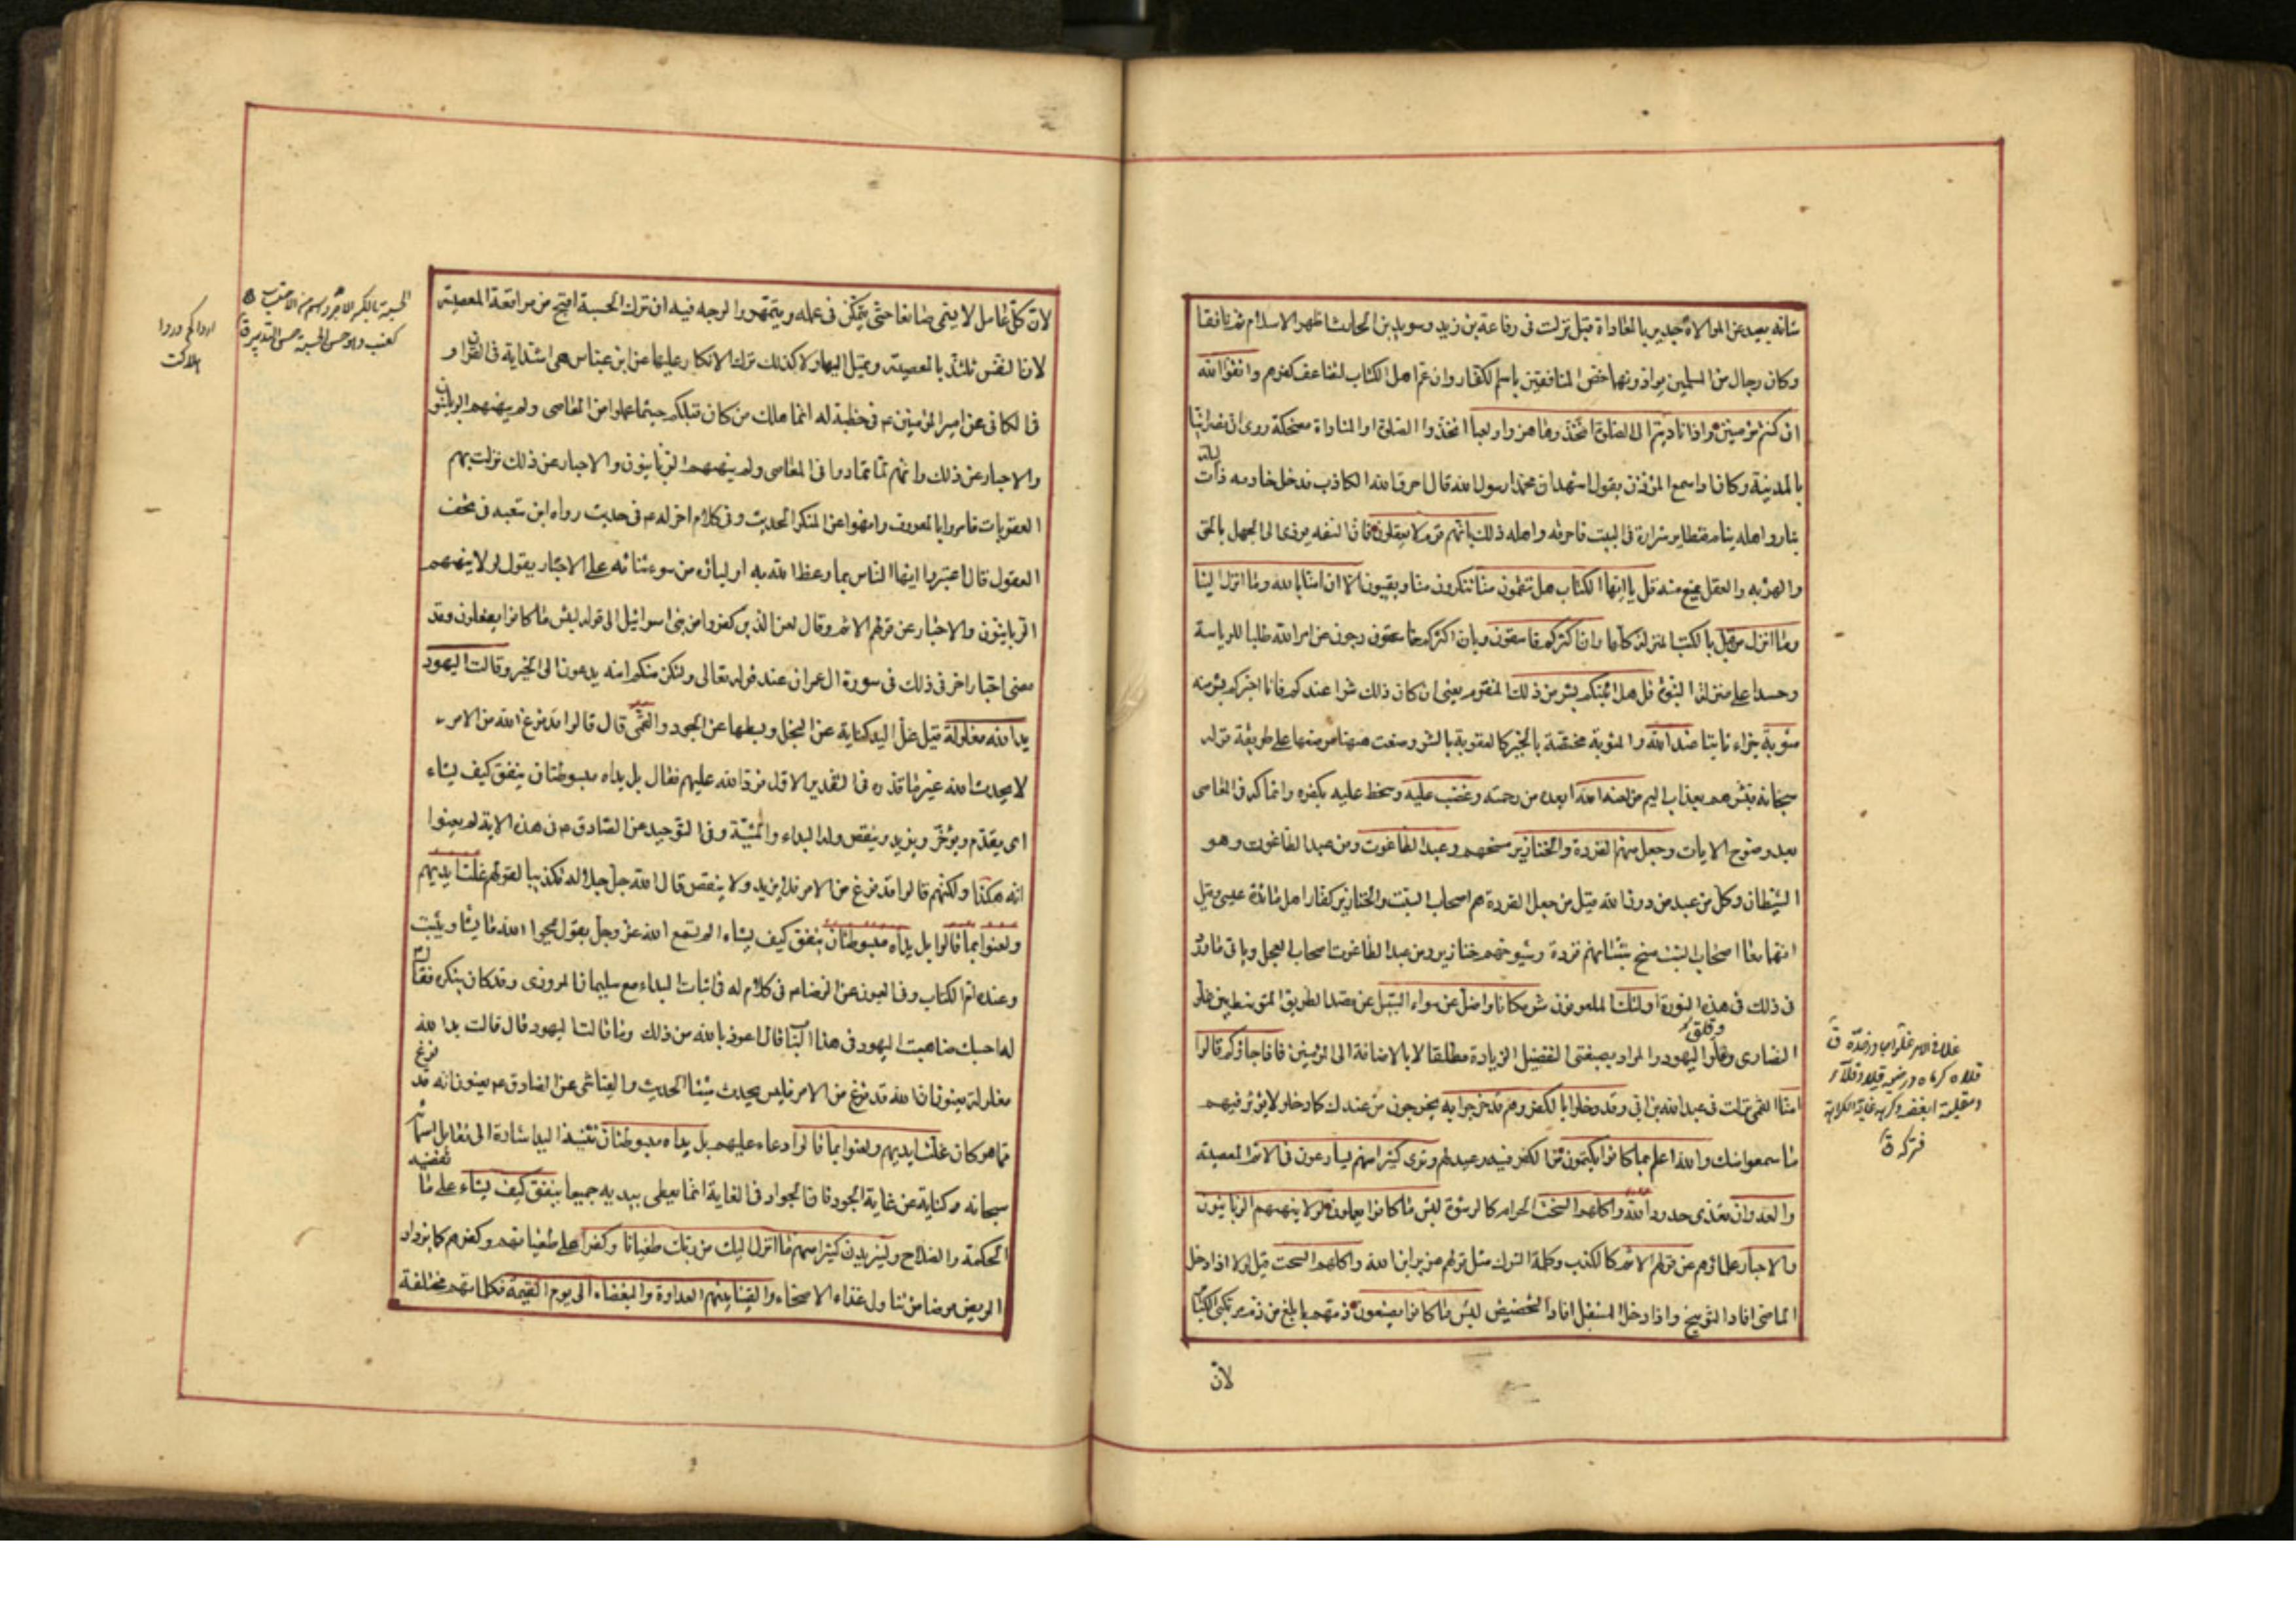 شانه بعيد عن الموالاة جدير بالمعاداة قيل نزلت فى رفاعة بن زيد وسويد بن الحارث اظهر الاسلام ثم نافقا
وكان رجال من المسلمين يوادونهما خص المنافقين باسم الكفار وان عم اهل الكتاب لتضاعف كفرهم واتقوا الله
ان كنتم مؤمنين واذا ناديتم الى الصلوة اتخذوها هزوا ولعبا اتخذوا الصلوة او المناداة مضحكة روى ان نصرانيا
بالمدينة وكان اذا سمع المؤذن يقول اشهد ان محمدا رسول الله قال احرق الله الكاذب فدخل خادمه ذات ليلة
بنار واهله نيام فتطاير شرارة فى البيت فاحرقه واهله ذلك بانهم قوم لا يعقلون فان السفه يؤدى الى الجهل بالحق
والهزء به والعقل يمنع منه قل يا ايها الكتاب هل تنقمون منا تنكرون منا وتعيبون الا ان امنا بالله وما انزل الينا
وما انزل من قبل بالكتب المنزلة كلها وان اكثركم فاسقون وبان اكثركم خارجون عن امر الله طلبا للرياسة
وحسدا على منزلة النبوة قل هل انبئكم بشر من ذلك المنقوم يعنى ان كان ذلك شرا عندكم فانا اخبركم بشر منه
مثوبة جزاء ثابتا عند الله والمثوبة مختصة بالخير كالعقوبة بالشر وضعت ههنا موضعها على طريقة قوله
سبحانه فبشرهم بعذاب اليم من لعنه الله ابعده من رحمته وغضب عليه وسخط عليه بكفره وانهماكه فى المعاصى
بعد وضوح الايات وجعل منهم القردة والخنازير مسخهم وعبد الطاغوت ومن عبد الطاغوت وهو
الشيطان وكل من عبد من دون الله قيل من جعل القردة هم اصحاب السبت والخنازير كفار اهل مائدة عيسى وقيل
انهما معا اصحاب السبت مسخ شبانهم قردة وشيوخهم خنازير ومن عبد الطاغوت اصحاب العجل وياتى ما ورد
فى ذلك فى هذه السورة اولئك الملعونون شر مكانا واضل عن سواء السبيل عن قصد الطريق المتوسط بين غلو
النصارى وغلو اليهود والمراد بصفتى التفضيل الزيادة مطلقا لا بالاضافة الى المؤمنين فاذا جاؤكم قالوا
امنا القمى نزلت فى عبد الله بن ابى وقد دخلوا بالكفر وهم قد خرجوا به يخرجون من عندك كما دخلوا لا يؤثر فيهم
ما سمعوا منك والله اعلم بما كانوا يكتمون من الكفر فيه وعيد لهم وترى كثيرا منهم يسارعون فى الاثم المعصية
والعدوان تعدى حدود الله واكلهم السحت الحرام كالرشوة لبئس ما كانوا يعملون لولا ينهيهم الربانيون
والاحبار علماؤهم عن قولهم الاثم كالكذب وكلمة الشرك مثل قولهم عزير ابن الله واكلهم السحت قيل لولا اذا دخل
الماضى افاد التوبيخ واذا دخل المستقبل افاد التحضيض لبئس ما كانوا يصنعون ذمهم بابلغ من ذم مرتكبى الكبائر
لان
لان كل عامل لا يسمى صانعا حتى يتمكن فى عمله ويتمهر والوجه فيه ان ترك الحسبة اقبح من مواقعة المعصية
لان النفس تلتذ بالمعصية وتميل اليها ولا كذلك ترك الانكار عليها عن ابن عباس هى اشد اية فى القران و
فى الكافى عن امير المؤمنين ع فى خطبة له انما هلك من كان قبلكم حيثما عملوا من المعاصى ولم ينههم الربانيون
والاحبار عن ذلك وانهم لما تمادوا فى المعاصى ولم ينههم الربانيون والاحبار عن ذلك نزلت بهم
العقوبات فامروا بالمعروف وانهوا عن المنكر الحديث وفى كلام اخر له ع فى حديث رواه ابن شعبه فى تحف
العقول قال اعتبروا ايها الناس بما وعظ الله به اولياءه من سوء ثنائه على الاحبار يقول لولا ينهيهم
الربانيون والاحبار عن قولهم الاثم وقال لعن الذين كفروا من بنى اسرائيل الى قوله لبئس ما كانوا يفعلون وقد
مضى اخبار اخر فى ذلك فى سورة ال عمران عند قوله تعالى ولتكن منكم امة يدعون الى الخير وقالت اليهود
يد الله مغلولة قيل غل اليد كناية عن البخل وبسطها عن الجود والقمى قال قالوا قد فرغ الله من الامر
لا يحدث الله غير ما قدره فى التقدير الاول فرد الله عليهم فقال بل يداه مبسوطتان ينفق كيف يشاء
اى يقدم ويؤخر ويزيد وينقص وله البداء والمشية وفى التوحيد عن الصادق ع فى هذه الاية لم يعنوا
انه هكذا ولكنهم قالوا قد فرغ من الامر فلا يزيد ولا ينقص قال الله جل جلاله تكذيبا لقولهم غلت ايديهم
ولعنوا بما قالوا بل يداه مبسوطتان ينفق كيف يشاء الم تسمع الله عز وجل يقول يمحوا الله ما يشاء ويثبت
وعنده ام الكتاب وفى العيون عن الرضا ع فى كلام له فى اثبات البداء مع سليمان المروزى وقد كان ينكره فقال
له احسبك ضاهيت اليهود فى هذا الباب قال اعوذ بالله من ذلك وما قالت اليهود قال قالت يد الله
مغلولة يعنون ان الله قد فرغ من الامر فليس يحدث شيئا الحديث والعياشى عن الصادق ع يعنون انه قد فرغ
مما هو كان غلت ايديهم ولعنوا بما قالوا دعاء عليهم بل يداه مبسوطتان تثنية اليد اشارة الى تقابل اسمائه
سبحانه وكناية عن غاية الجود فان الجواد فى الغاية انما يعطى بيديه جميعا ينفق كيف يشاء على ما تقتضيه
الحكمة والصلاح وليزيدن كثيرا منهم ما انزل اليك من ربك طغيانا وكفرا على طغيانهم وكفرهم كما يزداد
المريض مرضا من تناول غذاء الاصحاء والقينا بينهم العداوة والبغضاء الى يوم القيمة فكلمتهم مختلفة